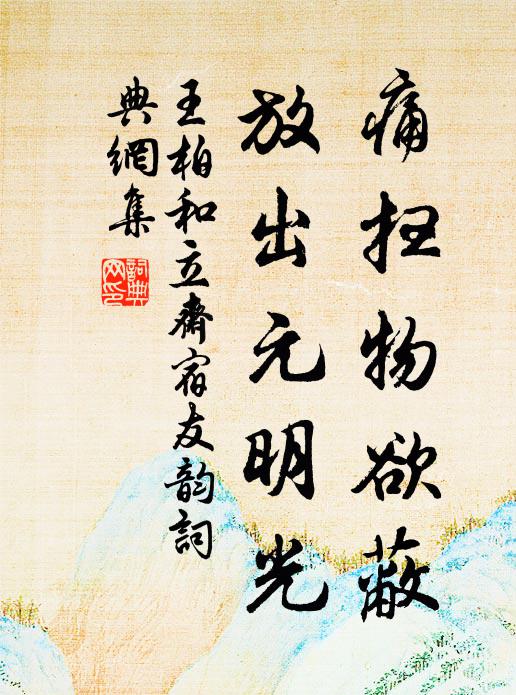 痛扫物欲蔽
放出元明光
王柏和立斋宿友韵词
典网集
词典
网印